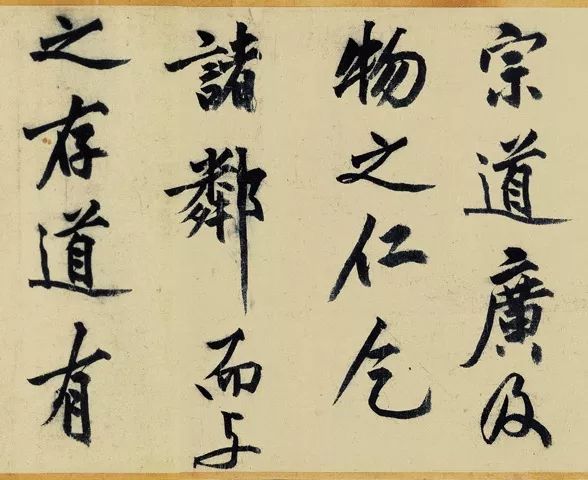 宗道廣及
物之仁乞
諸鄰而与
之存道有